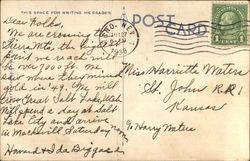 THIS SPACE FOR WRITING MESSAGES
POST CARD
Dear Folks,
We are crossing the
Sierra Mts, the highest
point we reach will
be over 7000 ft. We
saw where they mined
gold in '49. We will
cross Great Salt Lake, Utah
Will spend a day at Salt
Lake City and arrive
in Marksville Saturday noon
Howard & Ida Briggs
RENO, NEV.
1938
1 CENT 1
Miss Harriette Waters
St. John RR 1
Kansas
c/o Harry Waters